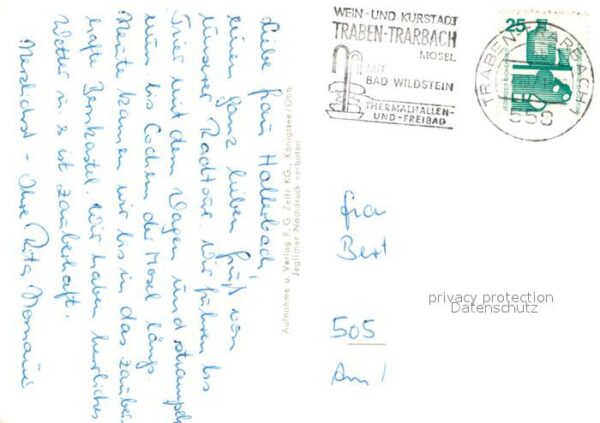 Liebe Frau Hallerbach,
einen ganz lieben Gruß von
unserer Radtour. Wir fuhren bis
Trier mit dem Wagen und strampeln
nun bis Cochem der Mosel längs.
Heute kamen wir bis in das zauber-
hafte Bernkastel. Wir haben herrliches
Wetter u. es ist zauberhaft.
Herzlichst - Ihre Rita
Aufnahme u. Verlag F. G. Zeitz KG., Königssee/Obb.
Jeglicher Nachdruck verboten
WEIN-UND KURSTADT
TRABEN-TRARBACH
MOSEL
MIT
BAD WILDSTEIN
THERMALHALLEN-
UND-FREIBAD
TRABEN-TRARBACH 1
558
25
Fra
Bert
505
Am
privacy protection
Datenschutz